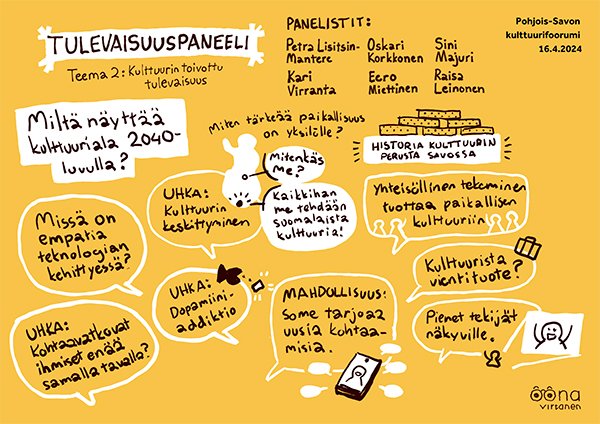 TULEVAISUUSPANEELI
Teema 2: Kulttuurin toivottu
tulevaisuus
PANELISTIT:
Petra Lisitsin-
Mantere
Oskari
Korkkonen
Sini
Majuri
Kari
Virranta
Eero
Miettinen
Raisa
Leinonen
Pohjois-Savon
kulttuurifoorumi
16.4.2024
Miltä näyttää
kulttuuriala 2040-
luvulla?
Miten tärkeää paikallisuus
on yksilölle?
Mitenkäs
me?
Kaikkihan
me tehdään
suomalaista
kulttuuria!
HISTORIA KULTTUURIN
PERUSTA SAVOSSA
UHKA:
Kulttuurin
keskittyminen
Yhteisöllinen tekeminen
tuottaa paikallisen
kulttuuriin
Missä on
empatia
teknologian
kehittyessä?
Kulttuurista
vientituote?
UHKA:
Dopamiini-
addiktio
MAHDOLLISUUS:
Some tarjoaa
uusia kohtaa-
misia.
Pienet tekijät
näkyville.
UHKA:
Kohtaavatkovat
ihmiset enää
samalla tavalla?
oona
virtanen